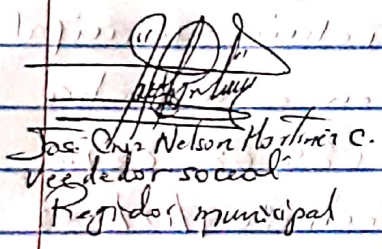 Jose Cruz Nelson Martinez C.
Veededor social
Regidor municipal